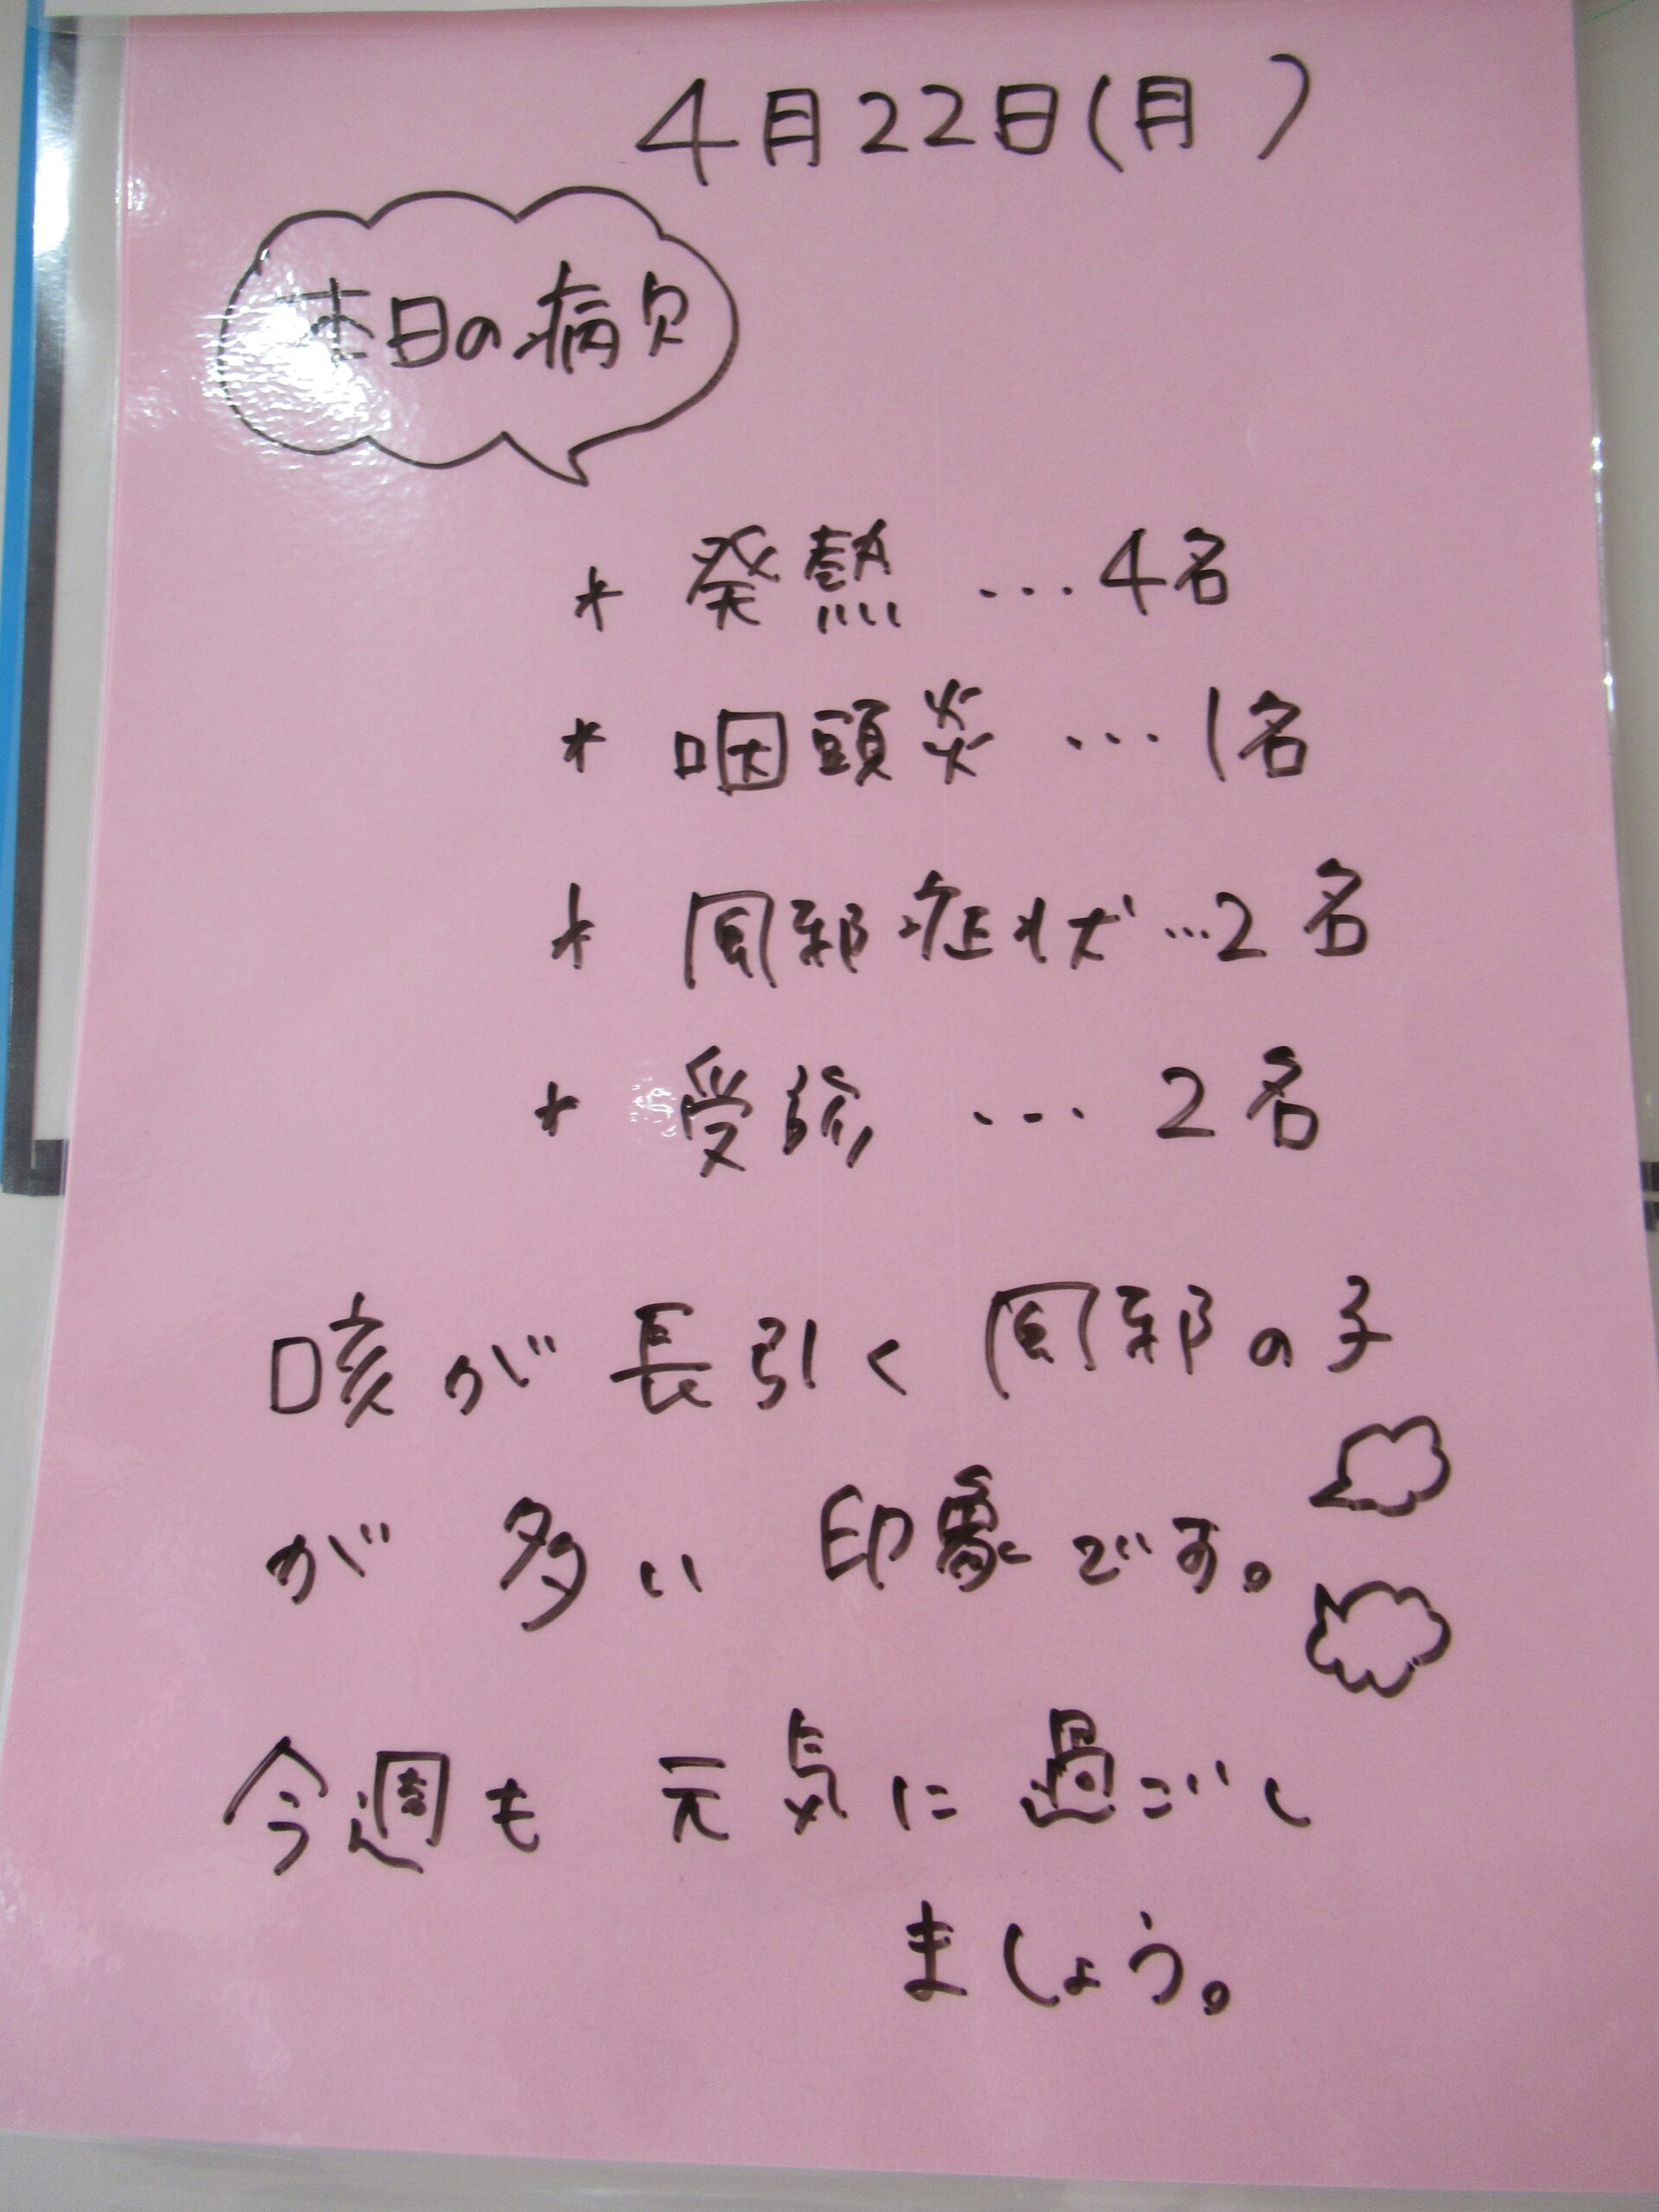 4月22日(月)
本日の病欠
* 発熱 …4名
* 咽頭炎 …1名
* 風邪症状…2名
* 受診 …2名
咳が長引く風邪の子
が多い印象です。
今週も元気に過ごし
ましょう。